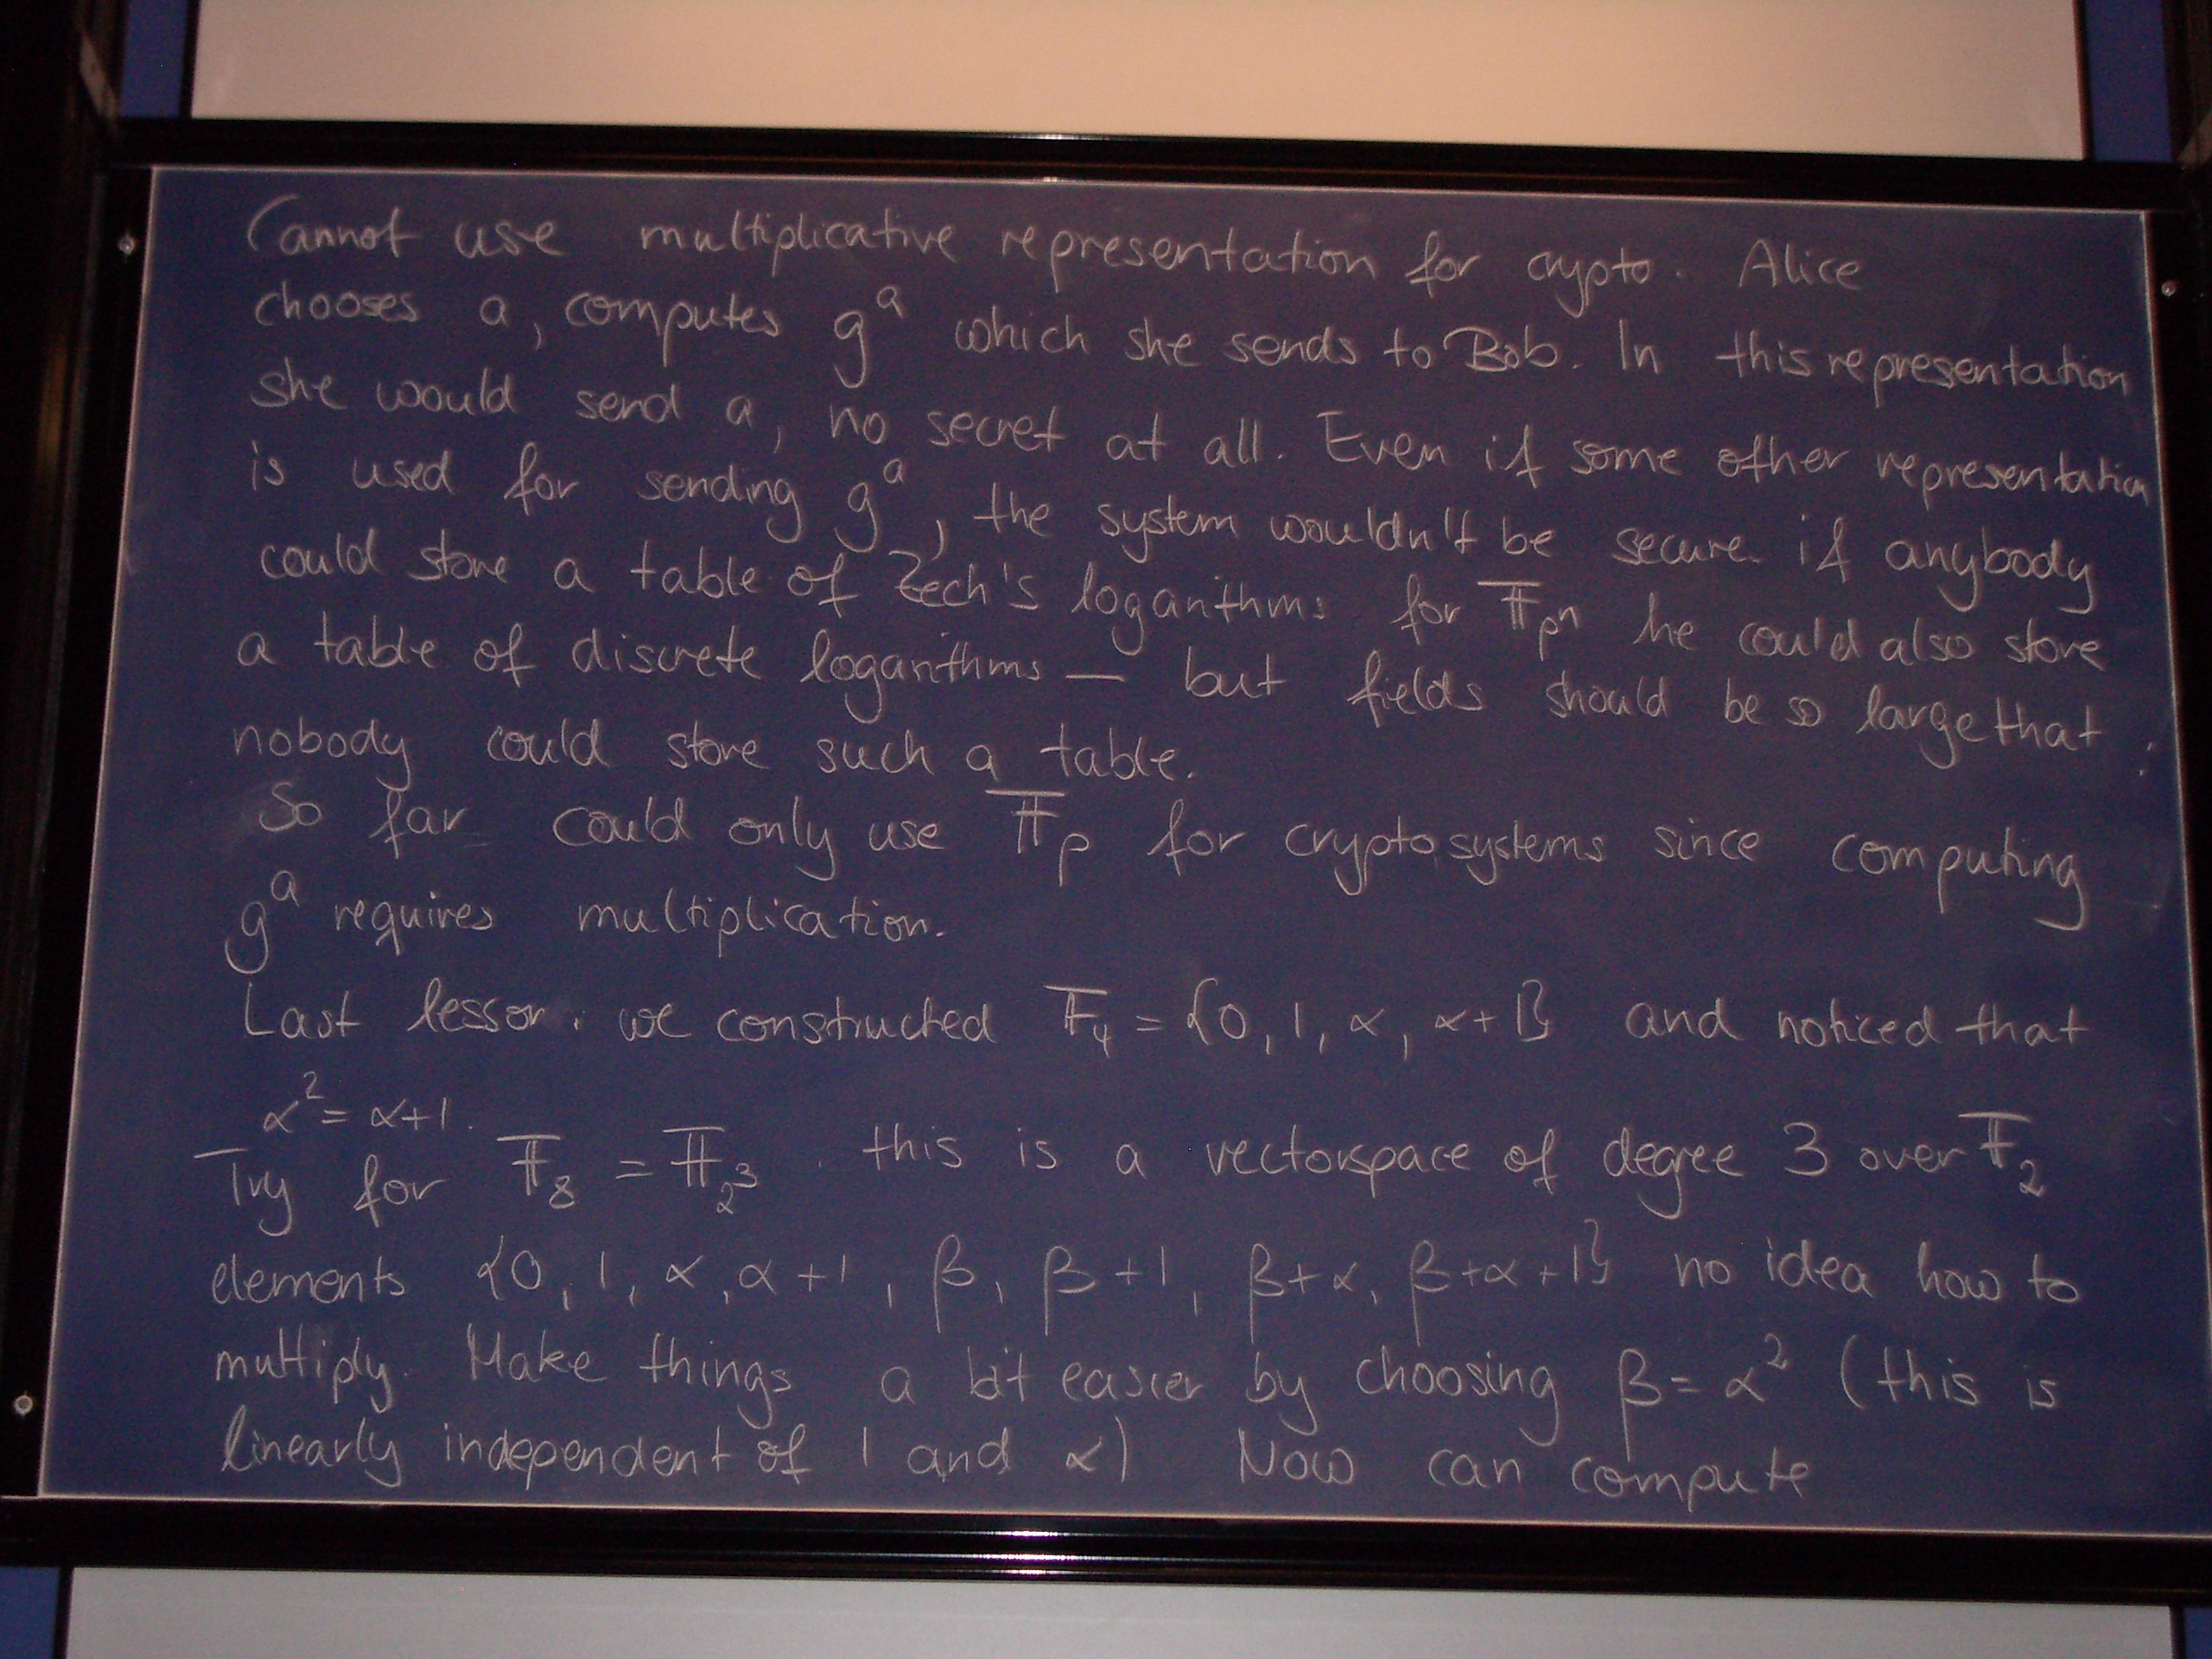 Cannot use multiplicative representation for crypto. Alice
chooses a, computes gᵃ which she sends to Bob. In this representation
she would send a, no secret at all. Even if some other representation
is used for sending gᵃ, the system wouldn't be secure if anybody
could store a table of Zech's logarithms for 𝔽_pⁿ he could also store
a table of discrete logarithms — but fields should be so large that
nobody could store such a table.
So far could only use 𝔽_p for cryptosystems since computing
gᵃ requires multiplication.
Last lesson: we constructed 𝔽₄ = {0, 1, α, α+1} and noticed that
α² = α+1.
Try for 𝔽₈ = 𝔽_2³. this is a vectorspace of degree 3 over 𝔽₂
elements {0, 1, α, α+1, β, β+1, β+α, β+α+1} no idea how to
multiply. Make things a bit easier by choosing β = α² (this is
linearly independent of 1 and α) Now can compute